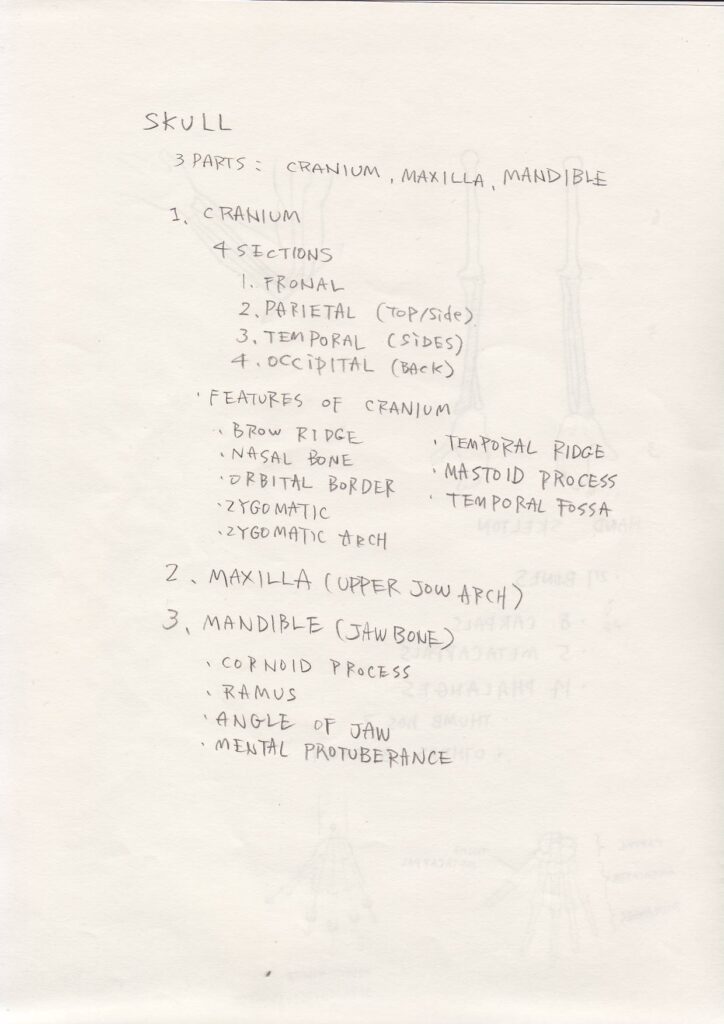 SKULL
3 PARTS: CRANIUM, MAXILLA, MANDIBLE
1. CRANIUM
4 SECTIONS
1. FRONAL
2. PARIETAL (TOP/Side)
3. TEMPORAL (SiDES)
4. OCCIPITAL (BACK)
· FEATURES OF CRANIUM
· BROW RIDGE
· NASAL BONE
· ORBITAL BORDER
· ZYGOMATIC
· ZYGOMATIC ARCH
· TEMPORAL RIDGE
· MASTOID PROCESS
· TEMPORAL FOSSA
2. MAXILLA (UPPER JOW ARCH)
3. MANDIBLE (JAW BONE)
· CORNOID PROCESS
· RAMUS
· ANGLE OF JAW
· MENTAL PROTUBERANCE